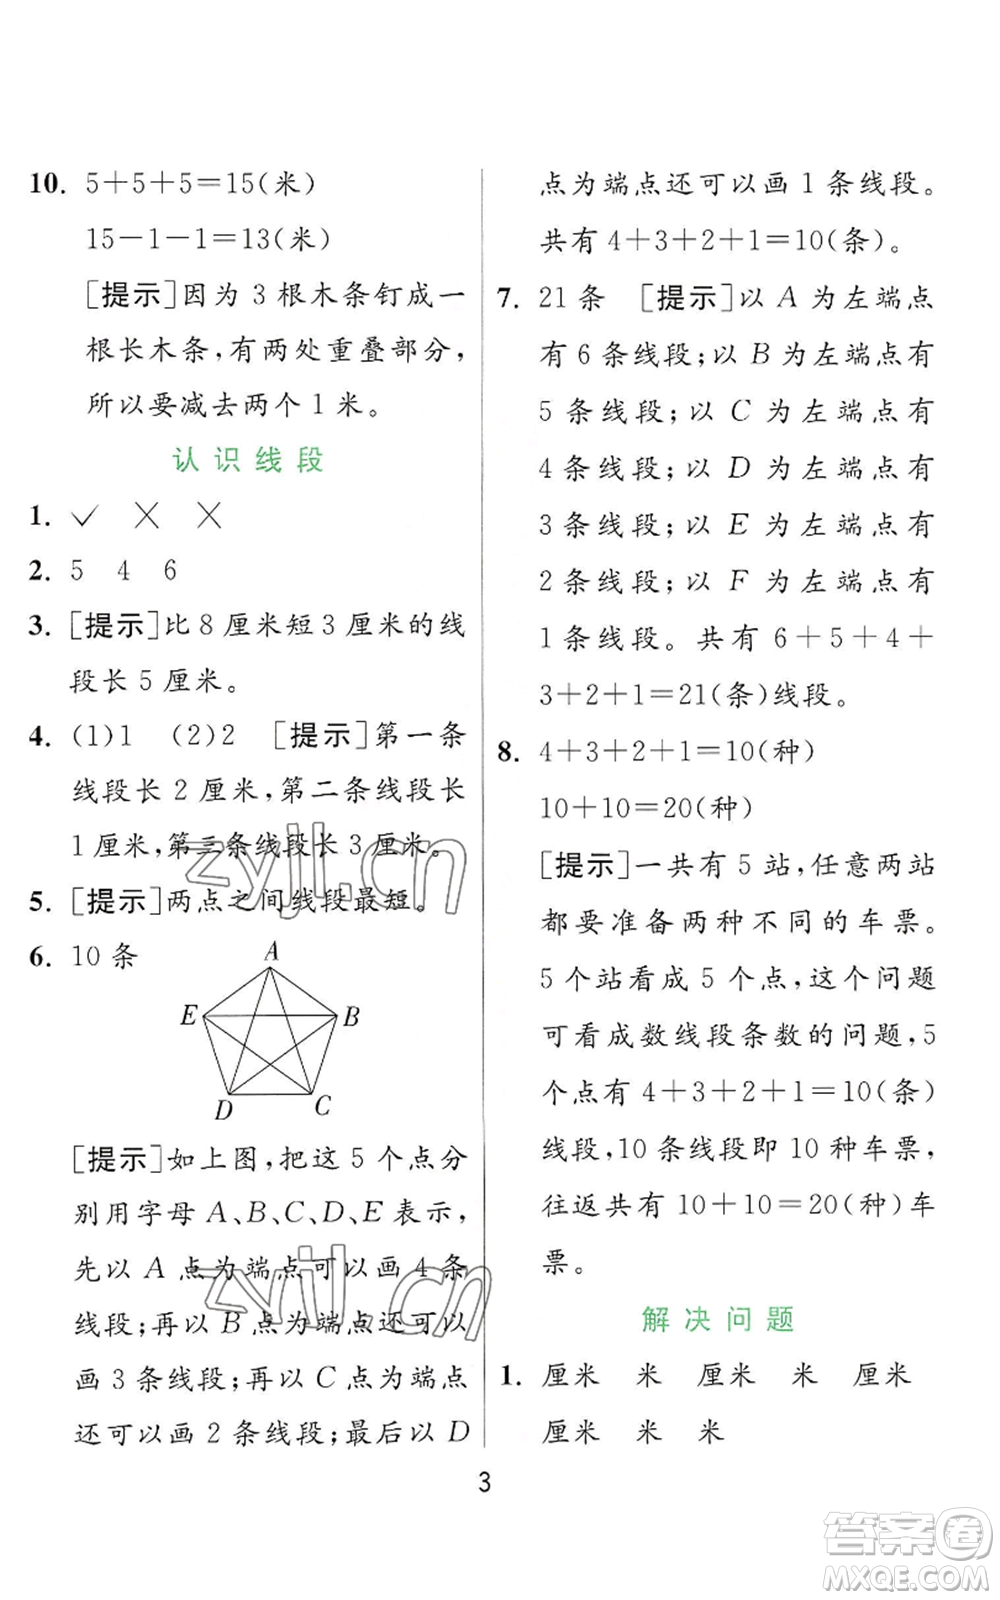 10. 5+5+5=15(米)
15-1-1=13(米)
[提示]因为 3 根木条钉成一
根长木条,有两处重叠部分,
所以要减去两个 1 米。
认识线段
1. ✓ ✕ ✕
2. 5 4 6
3. [提示]比 8 厘米短 3 厘米的线
段长 5 厘米。
4. (1)1 (2)2 [提示]第一条
线段长 2 厘米,第二条线段长
1 厘米,第三条线段长 3 厘米。
5. [提示]两点之间线段最短。
6. 10 条
A
E
B
D
C
[提示]如上图,把这 5 个点分
别用字母 A、B、C、D、E 表示,
先以 A 点为端点可以画 4 条
线段;再以 B 点为端点还可以
画 3 条线段;再以 C 点为端点
还可以画 2 条线段;最后以 D
点为端点还可以画 1 条线段。
共有 4+3+2+1=10(条)。
7. 21 条 [提示]以 A 为左端点
有 6 条线段;以 B 为左端点有
5 条线段;以 C 为左端点有
4 条线段;以 D 为左端点有
3 条线段;以 E 为左端点有
2 条线段;以 F 为左端点有
1 条线段。共有 6+5+4+
3+2+1=21(条)线段。
8. 4+3+2+1=10(种)
10+10=20(种)
[提示]一共有 5 站,任意两站
都要准备两种不同的车票。
5 个站看成 5 个点,这个问题
可看成数线段条数的问题,5
个点有 4+3+2+1=10(条)
线段,10 条线段即 10 种车票,
往返共有 10+10=20(种)车
票。
解决问题
1. 厘米 米 厘米 米 厘米
厘米 米 米
3
zyjl.cn
zyjl.cn
答案圈
MXQE.COM